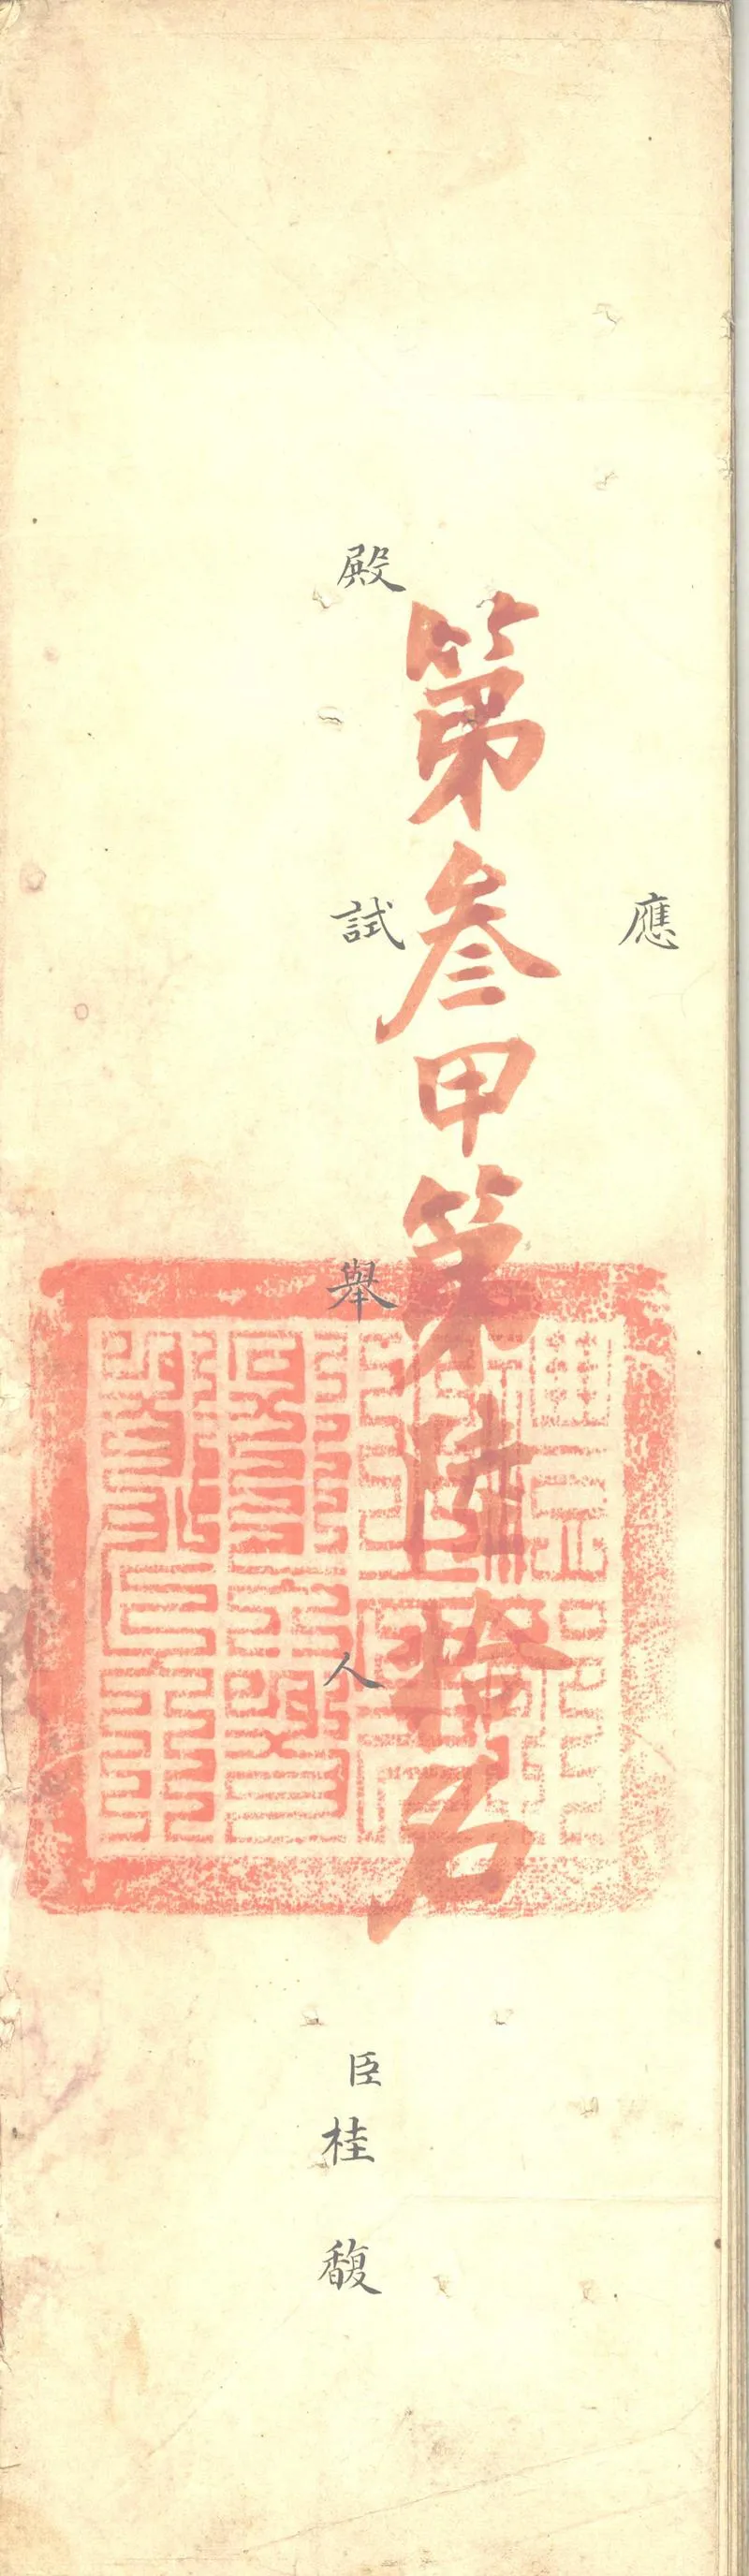 應
第叁甲第陸拾名
殿試舉人臣桂馥